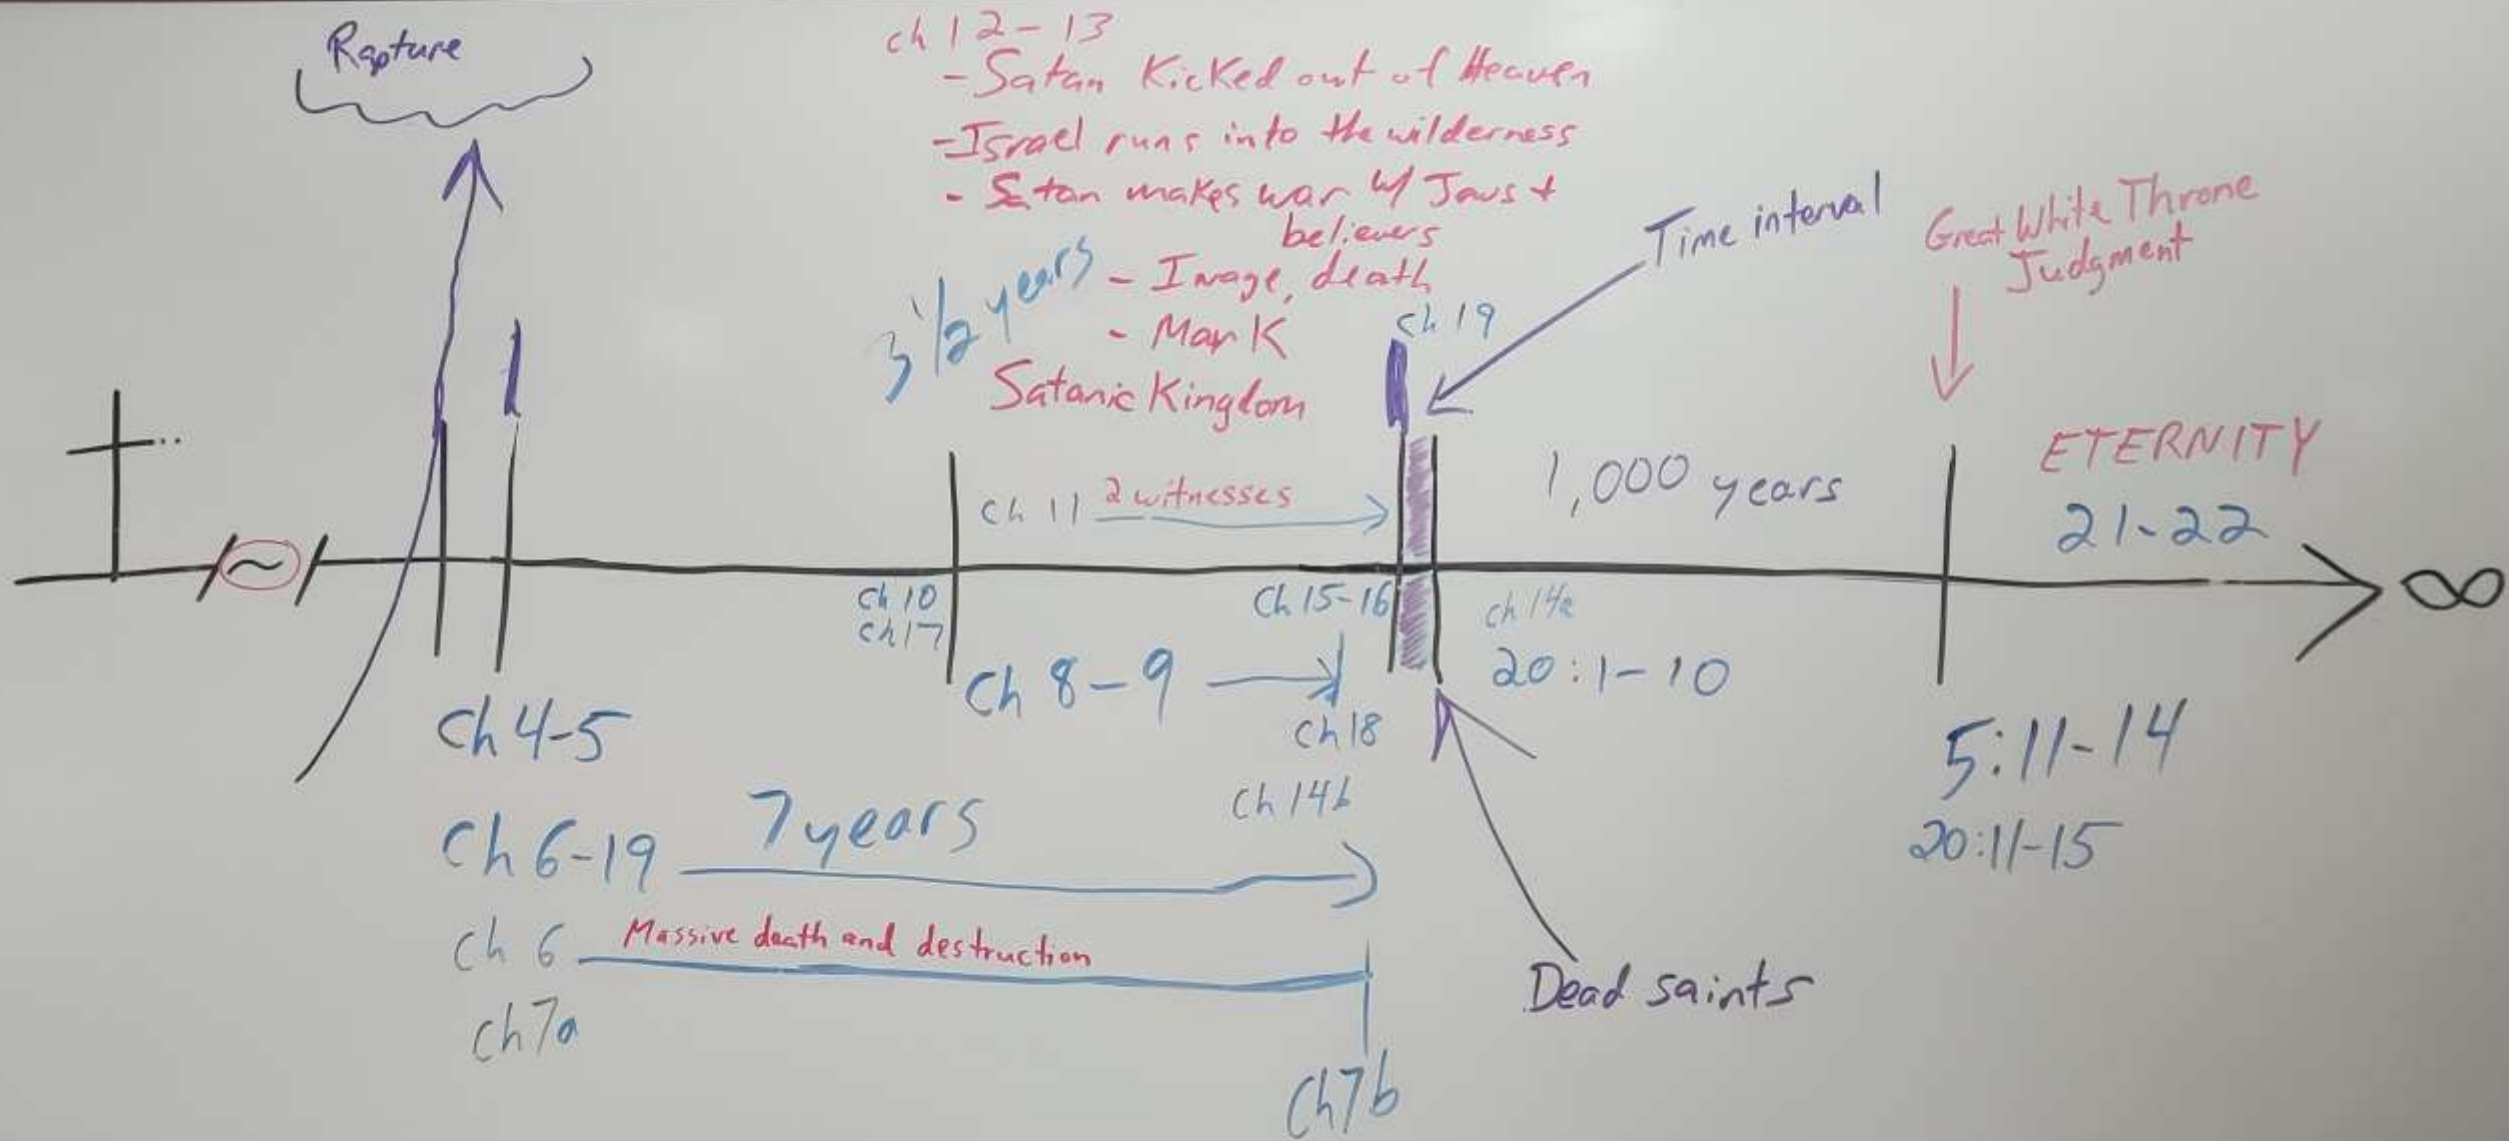 Rapture
ch 12-13
- Satan Kicked out of Heaven
- Israel runs into the wilderness
- Satan makes war w/ Jews +
believers
- Image, death
- Mark
Satanic Kingdom
3 1/2 years
Time interval
Great White Throne
Judgment
ch 19
ch 11 2 witnesses
1,000 years
ETERNITY
21-22
~
∞
ch 10
ch 17
Ch 15-16
ch 14a
20:1-10
Ch 8-9
ch 18
ch 14b
Ch 4-5
5:11-14
20:11-15
Ch 6-19 7 years
Ch 6 Massive death and destruction
Ch 7a
Ch 7b
Dead saints